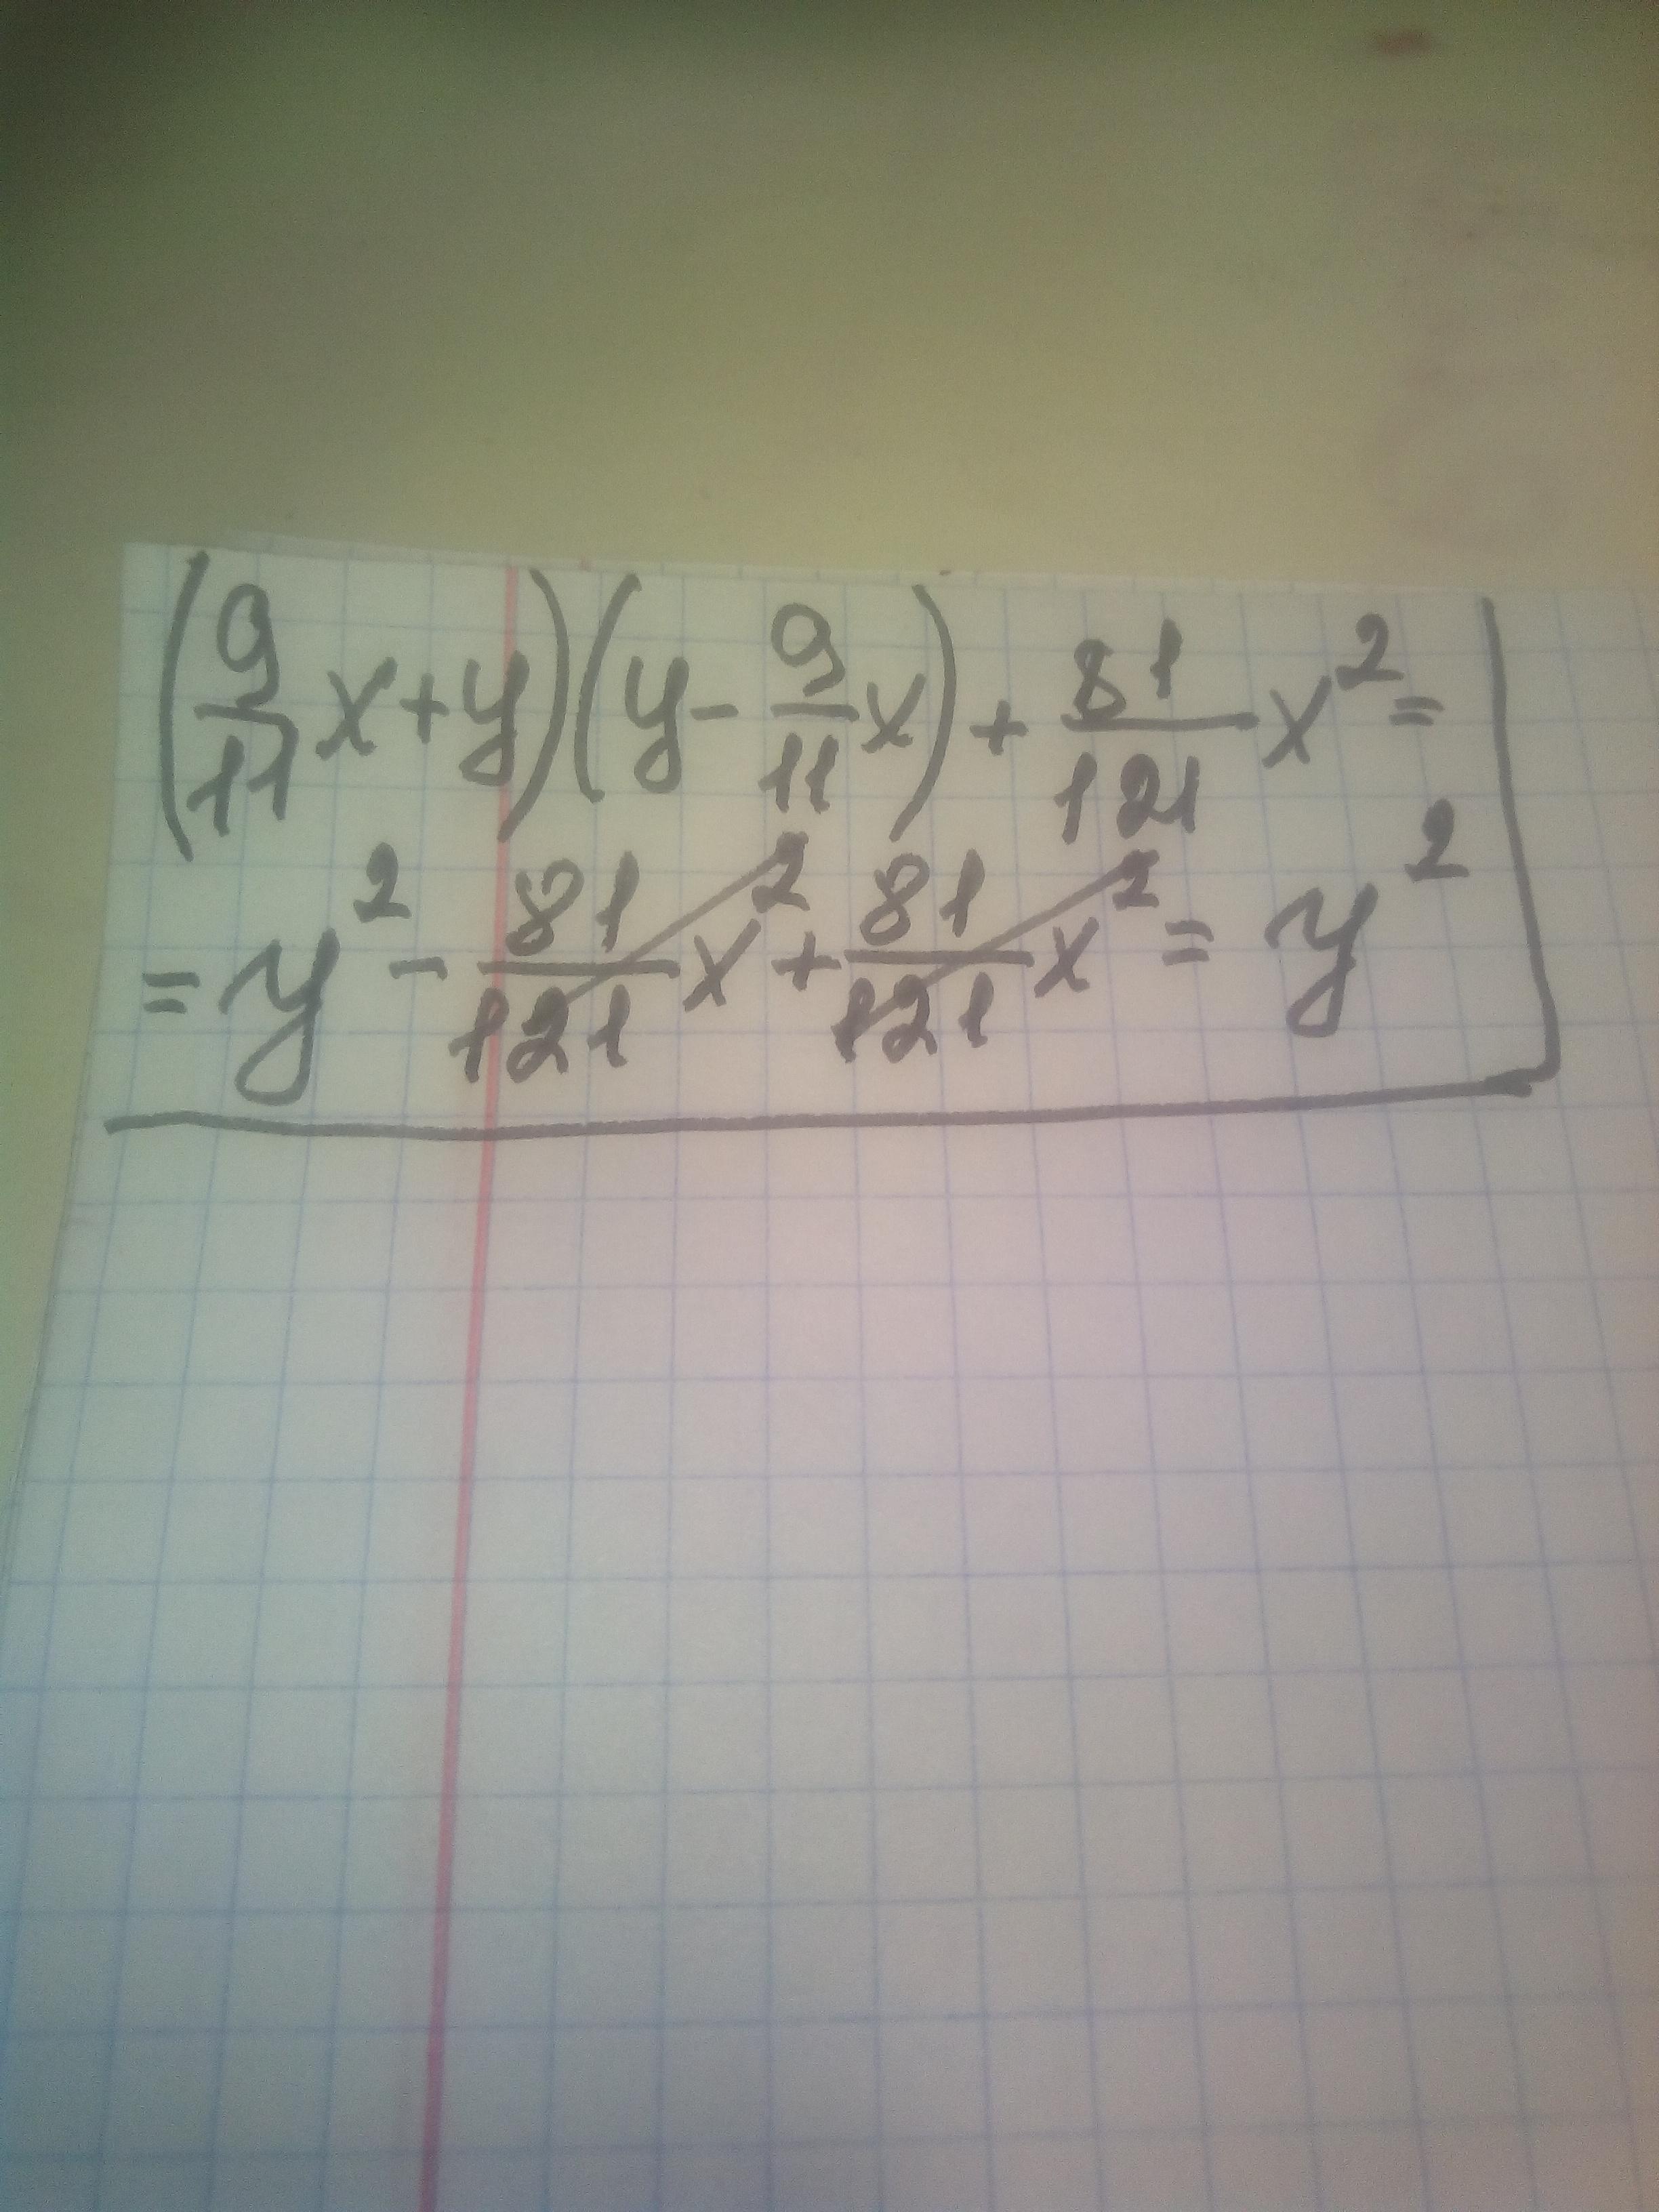 (9/11 x + y)(y - 9/11 x) + 81/121 x² =
= y² - 81/121 x² + 81/121 x² = y²